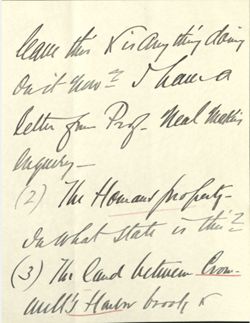 leave this & is anything doing
on it now? I have a
letter from Prof. Neal making
Inquiry—
(2) The Homans property—
In what state is this?
(3) The land between Crom-
well's Harbor brook &